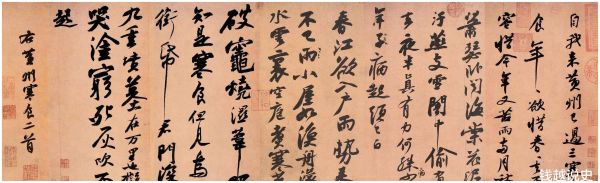 自我來黃州已過三寒
食年〻欲惜春〻去
容惜今年又苦雨兩月秌
蕭瑟臥聞海棠花泥
汙燕支雪闇中偷負
去夜半真有力何殊
年子病起頭已白
春江欲入戶雨勢來
不已雨小屋如漁舟
水雲裏空庖煮寒菜
破竈燒濕葦
知是寒食但見烏
銜帋君門深
九重墳墓在万里也擬
哭塗窮死灰吹不
起
右黃州寒食二首
钱越说史